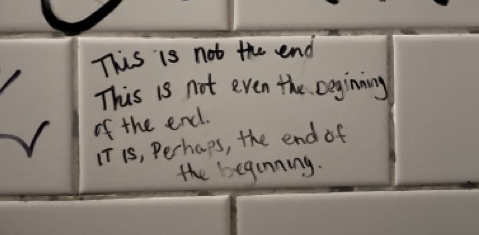 This is not the end
This is not even the Beginning
of the end.
IT IS, Perhaps, the end of
the beginning.